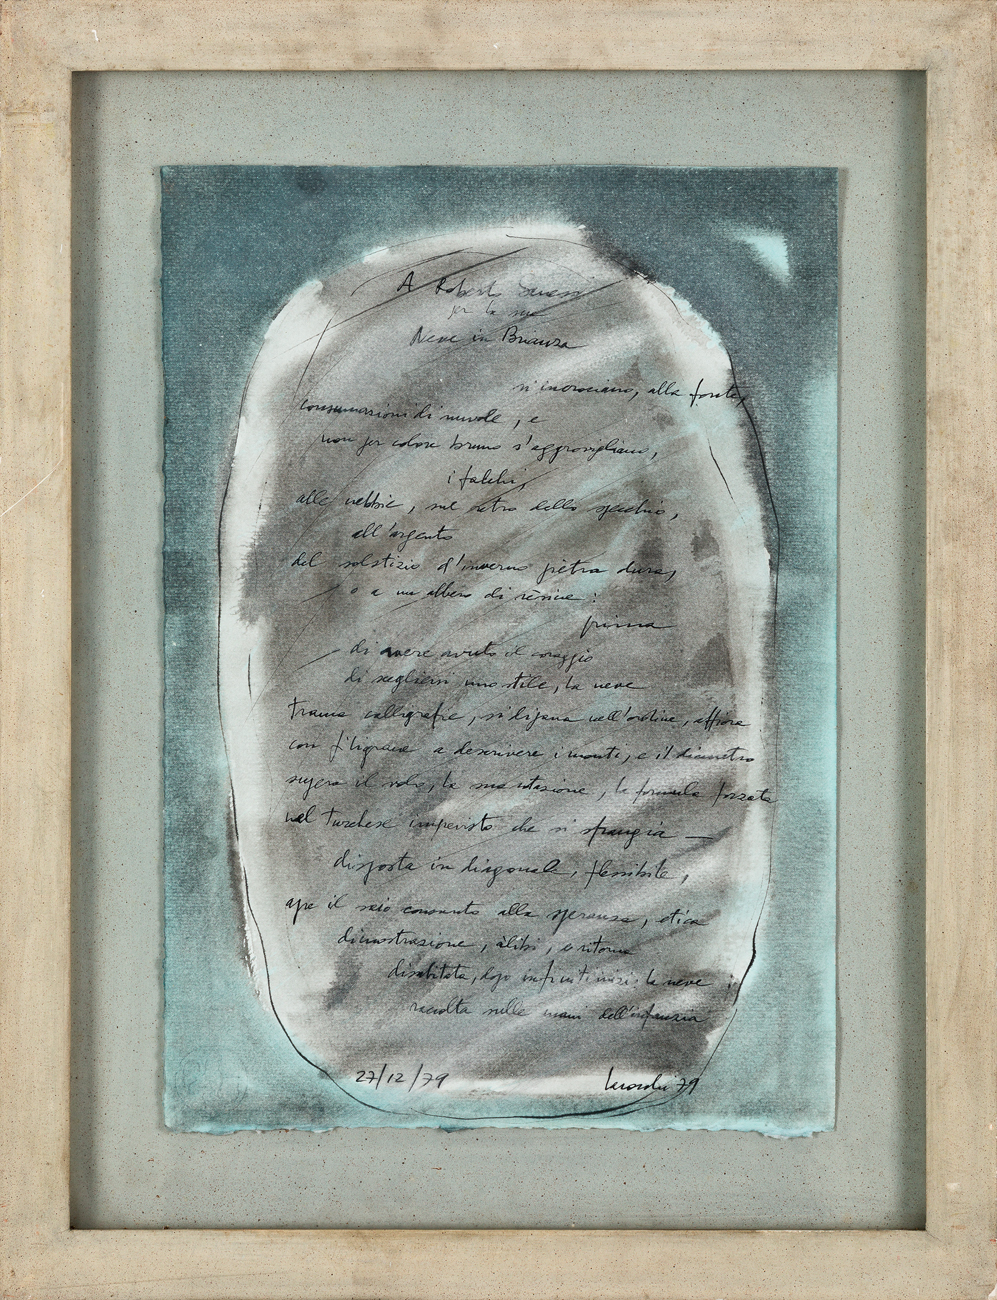 A Roberto
per la sua
Neve in Brianza
si incrociano, alla fonte,
consumazioni di nuvole, e
non per colore bruno s'aggrovigliano,
i falchi,
alle nebbie, sul retro dello specchio,
all'argento
del solstizio d'inverno pietra dura,
o a un albero di rèsine:
prima
di avere avuto il coraggio
di scegliersi uno stile, la neve
trama calligrafie, si
nell'ordine, affiora
con filigrane a descrivere i monti, e il diametro
supera il volo, la sua
la formula forzata
nel turchese imprevisto che si frangia —
disposta in diagonale, flessibile,
apre il
alla speranza, etica
dimostrazione, àlibi, o ritorna
disabitata, dopo infiniti inizi: la neve
raccolta sulle mani dell'infanzia
27/12/79
79